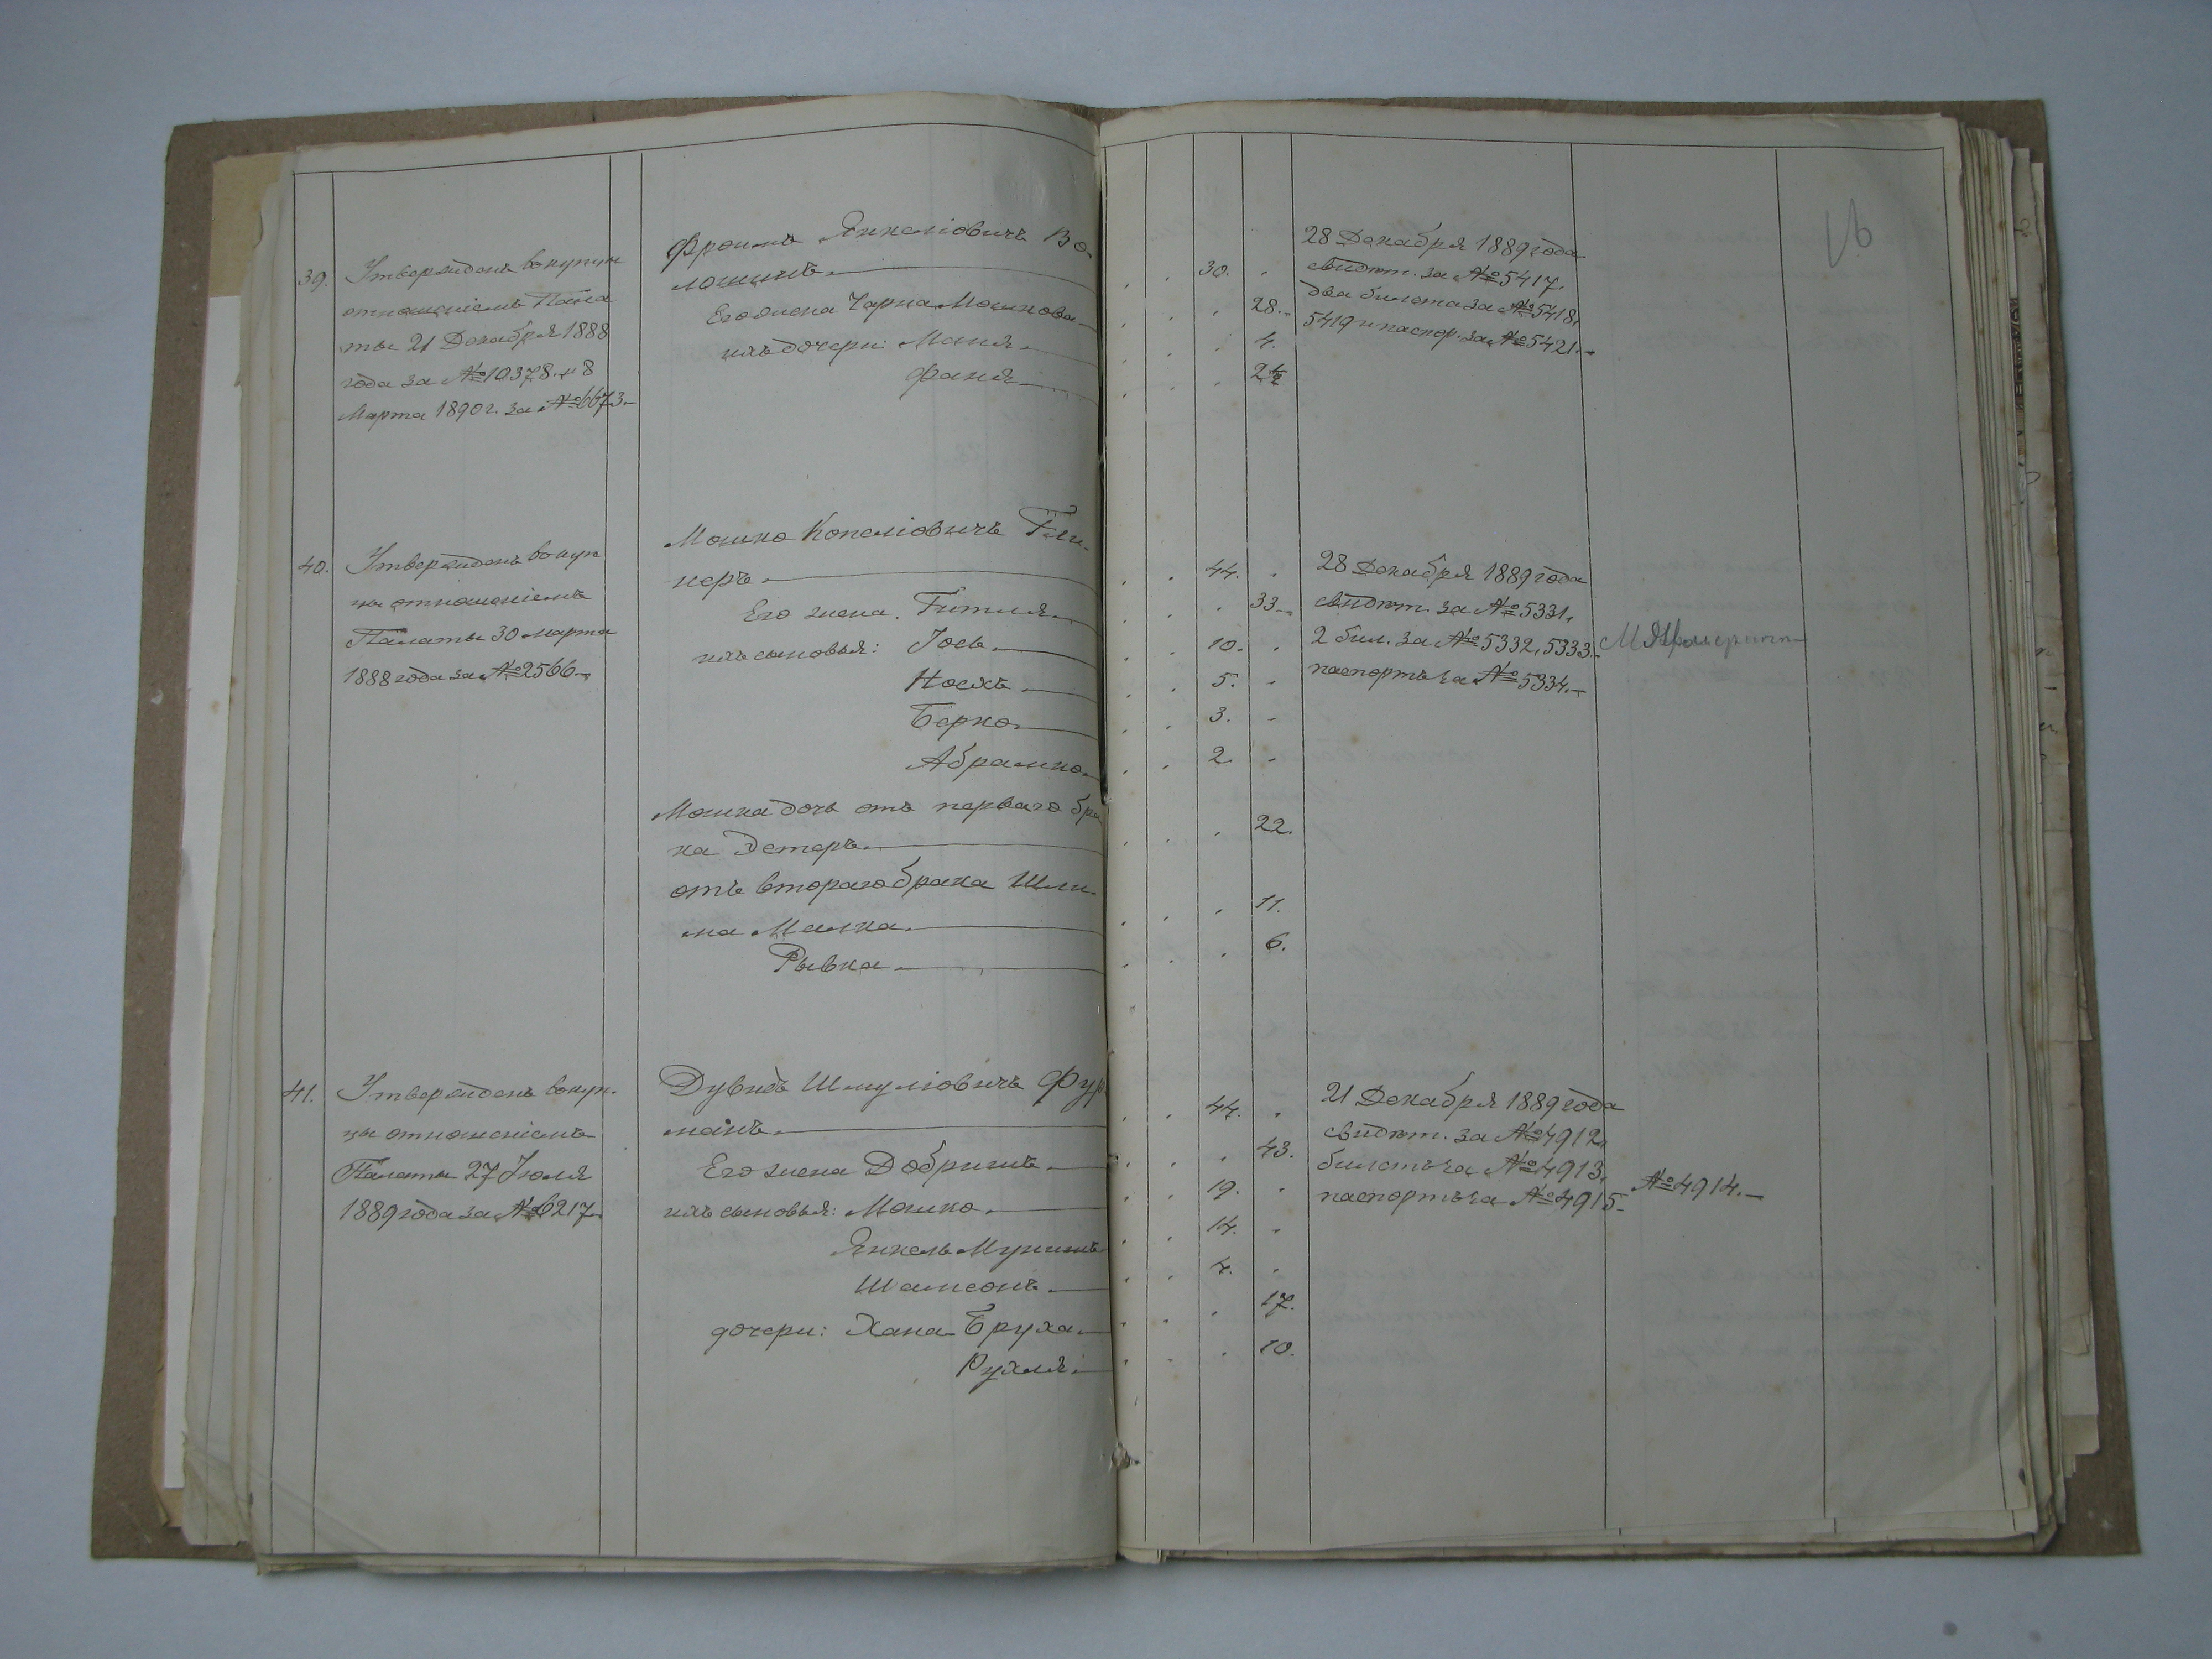 16
39.
Утвержденъ въ купцы
отношеніемъ Пала
ты 21 Декабря 1888
года за № 10378. и 8
Марта 1890 г. за № 6673
Фроимъ Янкеліовичъ Во-
лошинъ.
Его жена Чарна Мошкова
ихъ дочери: Маня.
Фаня
30.
28.
4.
2½
28 Декабря 1889 года
свидѣт. за № 5417.
два билета за № 5418,
5419 и паспор. за № 5421.
40.
Утвержденъ въ куп
цы отношеніемъ
Палаты 30 марта
1888 года за № 2566
Мошко Копеліовичъ
неръ.
Его жена. Гитля.
ихъ сыновья: Іось.
Носхъ.
Берко.
Абрамко.
Мошка дочь отъ перваго бра
ка Эстеръ.
отъ втораго брака Шли-
ма Малка.
Рывка.
44.
33.
10.
5.
3.
2.
22.
11.
6.
28 Декабря 1889 года
свидѣт. за № 5331,
2 бил. за № 5332, 5333.
паспортъ за № 5334.
41.
Утвержденъ въ куп-
цы отношеніемъ
Палаты 27 Іюля
1889 года за № 6217
Дувидъ Шмуліовичъ Фур
манъ.
Его жена Добришъ.
ихъ сыновья: Мошко.
Янкель Мунишъ
Шамсонъ.
дочери: Хана Бруха.
Рухля.
44.
43.
19.
14.
4.
17.
10.
21 Декабря 1889 года
свидѣт. за № 4912,
билетъ за № 4913, № 4914.
паспортъ за № 4915